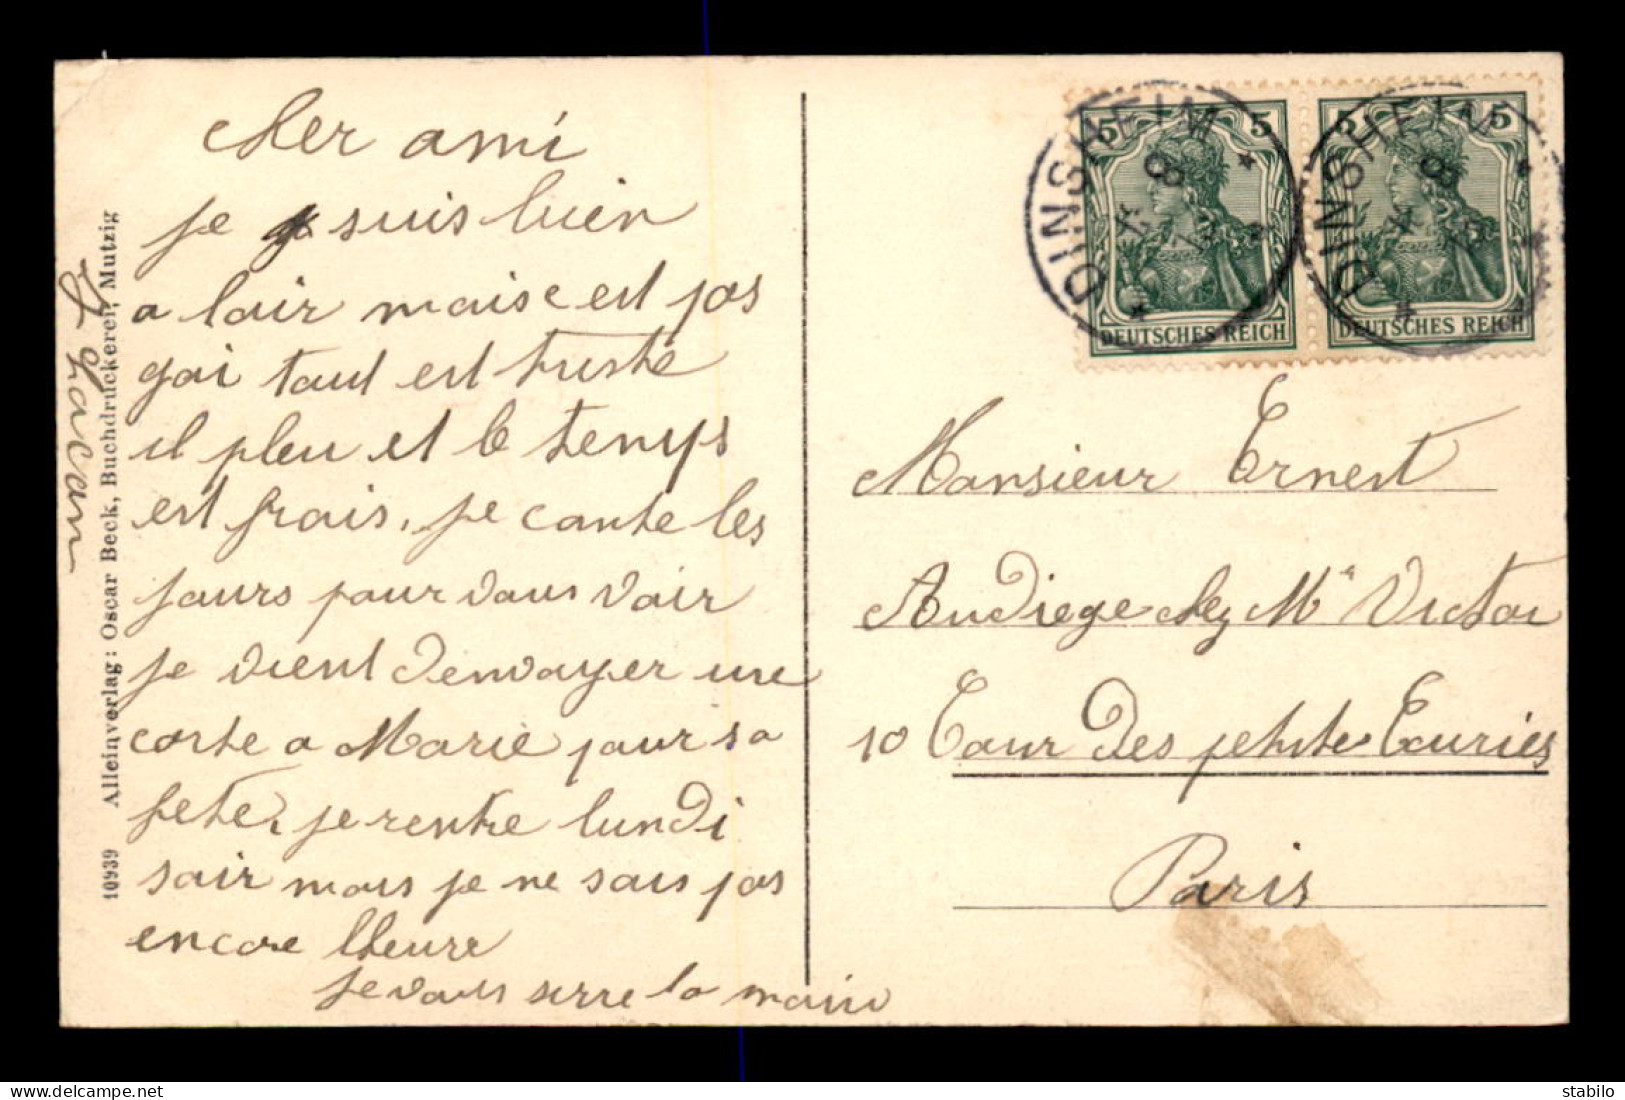 cher ami
je suis bien
a lair mais cest pas
gai tout est triste
il pleu et le temps
est frais, je conte les
jours pour vous voir
je vient denvoyer une
corte a Marie pour sa
fete, je rentre lundi
soir mais je ne sais pas
encore lheure
je vous serre la main
10939 Alleinverlag: Oscar Beck, Buchdruckerei, Mutzig
DINSHEIM
8
5 5
DEUTSCHES REICH
DINSHEIM
8
5 5
DEUTSCHES REICH
Monsieur Ernest
Audiege chez Mr Victor
10 Cour Des petite Ecuries
Paris
stabilo